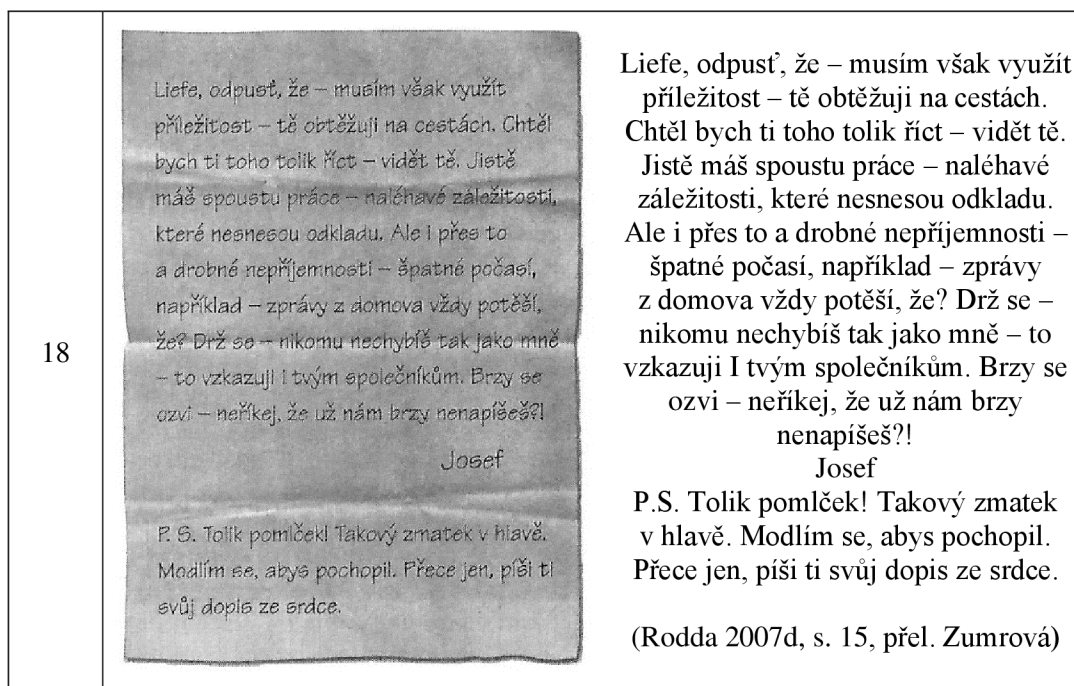 18
Liefe, odpusť, že – musím však využít
příležitost – tě obtěžuji na cestách. Chtěl
bych ti toho tolik říct – vidět tě. Jistě
máš spoustu práce – naléhavé záležitosti,
které nesnesou odkladu. Ale i přes to
a drobné nepříjemnosti – špatné počasí,
například – zprávy z domova vždy potěší,
že? Drž se – nikomu nechybíš tak jako mně
– to vzkazuji i tvým společníkům. Brzy se
ozvi – neříkej, že už nám brzy nenapíšeš?!
Josef
P. S. Tolik pomlček! Takový zmatek v hlavě.
Modlím se, abys pochopil. Přece jen, píši ti
svůj dopis ze srdce.
Liefe, odpusť, že – musím však využít
příležitost – tě obtěžuji na cestách.
Chtěl bych ti toho tolik říct – vidět tě.
Jistě máš spoustu práce – naléhavé
záležitosti, které nesnesou odkladu.
Ale i přes to a drobné nepříjemnosti –
špatné počasí, například – zprávy
z domova vždy potěší, že? Drž se –
nikomu nechybíš tak jako mně – to
vzkazuji I tvým společníkům. Brzy se
ozvi – neříkej, že už nám brzy
nenapíšeš?!
Josef
P.S. Tolik pomlček! Takový zmatek
v hlavě. Modlím se, abys pochopil.
Přece jen, píši ti svůj dopis ze srdce.
(Rodda 2007d, s. 15, přel. Zumrová)